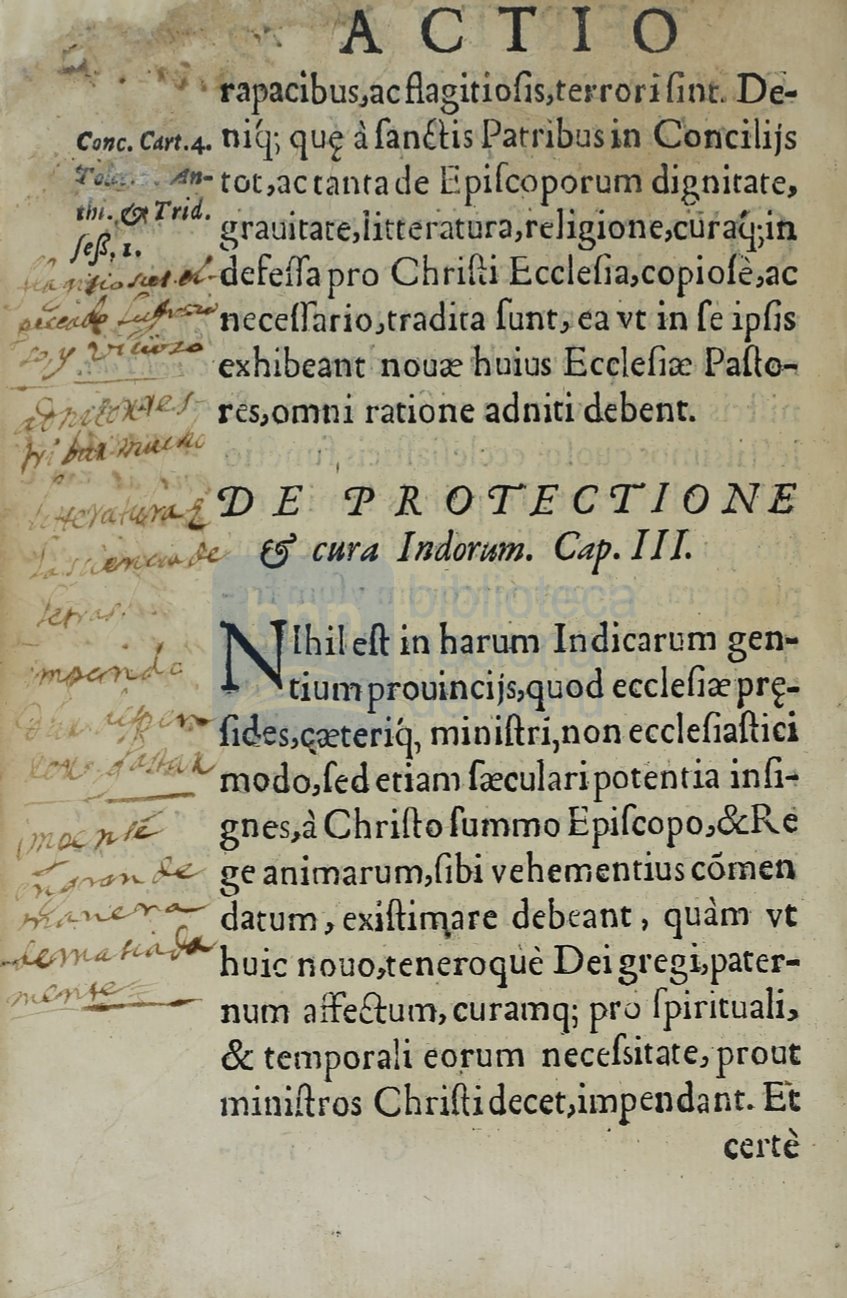 ACTIO
rapacibus,ac flagitiosis,terrori sint. De-
Conc. Cart.4.
niq́; quę à sanctis Patribus in Concilijs
An-
tot,ac tanta de Episcoporum dignitate,
thi. & Trid.
grauitate,litteratura,religione,curaq́;in
seß. 1.
defessa pro Christi Ecclesia,copiosè,ac
necessario,tradita sunt, ea vt in se ipsis
y vicioso
exhibeant nouæ huius Ecclesiæ Pasto-
res,omni ratione adniti debent.
DE PROTECTIONE
litteratura
& cura Indorum. Cap. III.
la sciencia de
letras.
NIhil est in harum Indicarum gen-
tium prouincijs,quod ecclesiæ prę-
sides,cæteriq́, ministri,non ecclesiastici
modo,sed etiam sæculari potentia insi-
gnes,à Christo summo Episcopo,&Re
ge animarum,sibi vehementius cõmen
en grande
datum, existimare debeant, quàm vt
manera
huic nouo,teneroquè Dei gregi,pater-
demaciada
num affectum, curamq; pro spirituali,
mente
& temporali eorum necessitate, prout
ministros Christi decet,impendant. Et
certè
biblioteca